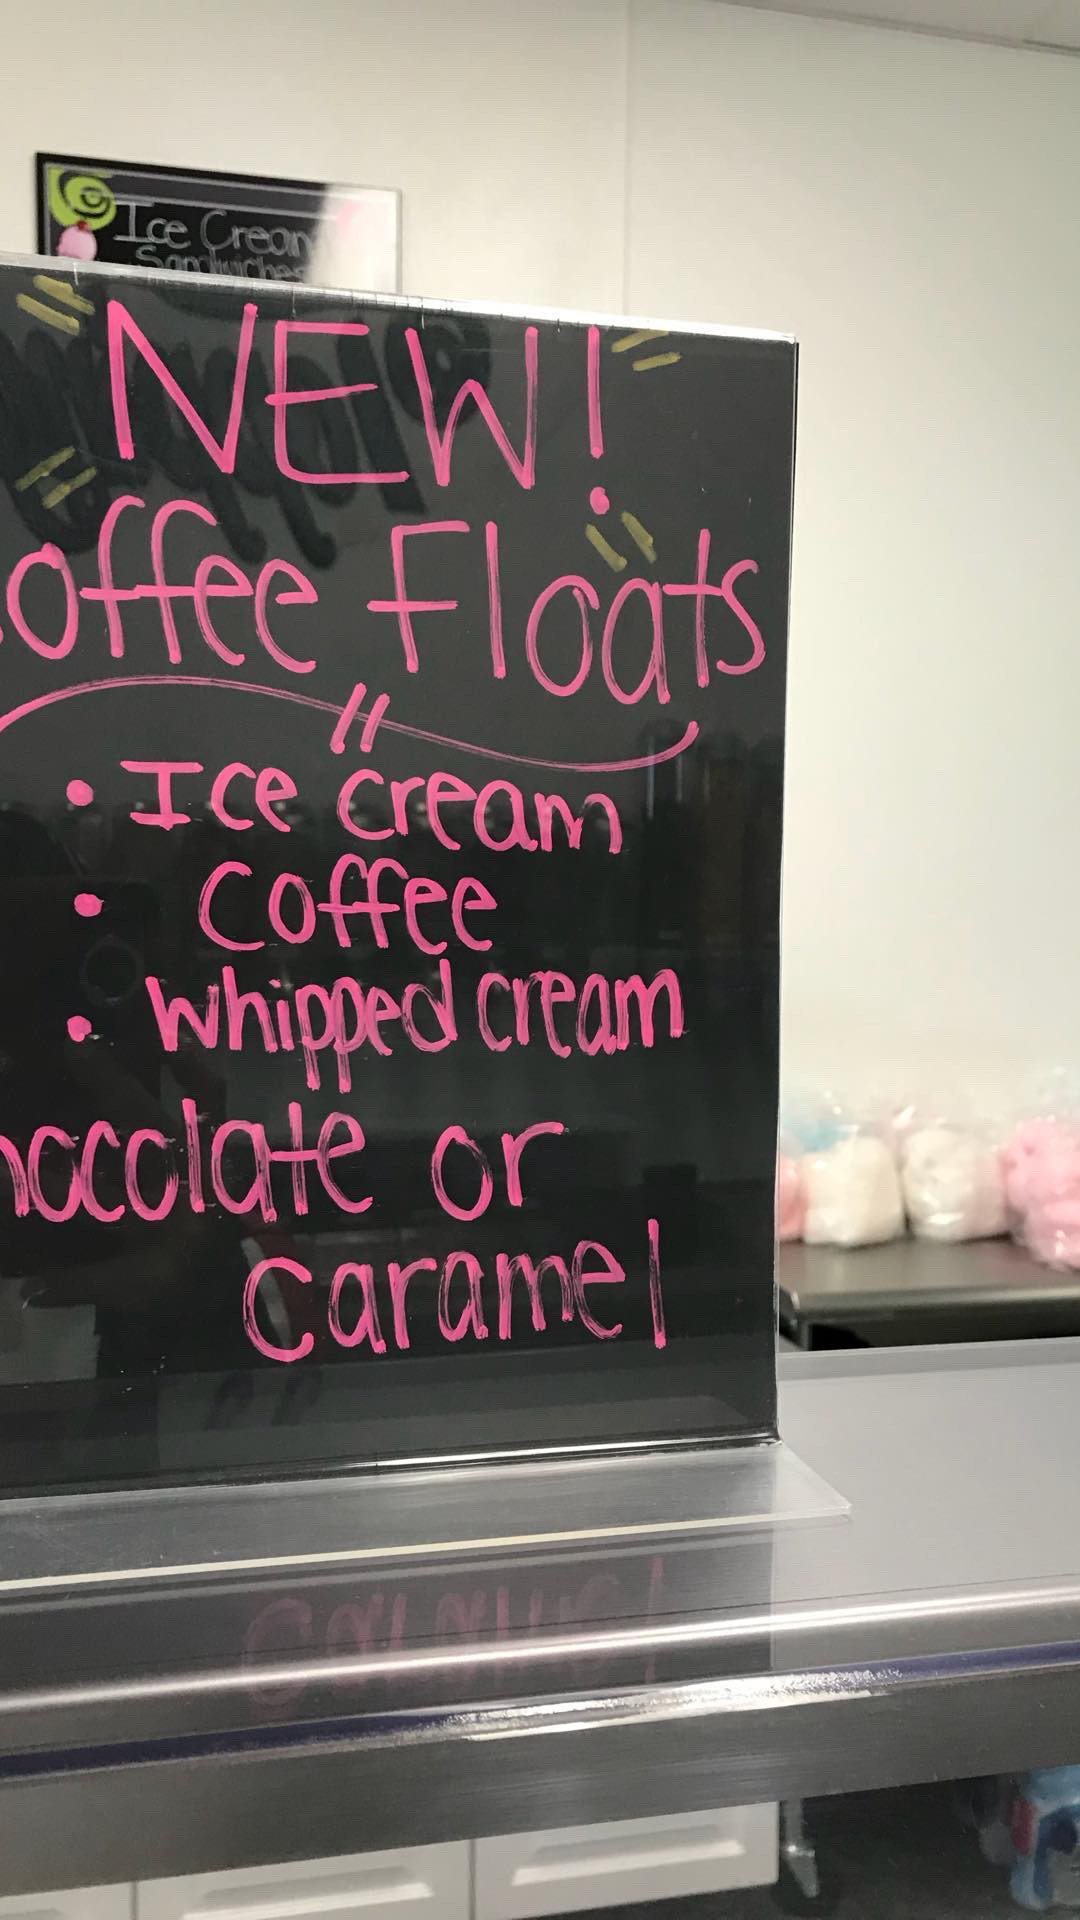 Ice Cream
Sandwiches
NEW!
offee Floats
• Ice cream
• Coffee
• Whipped cream
hocolate or
Caramel